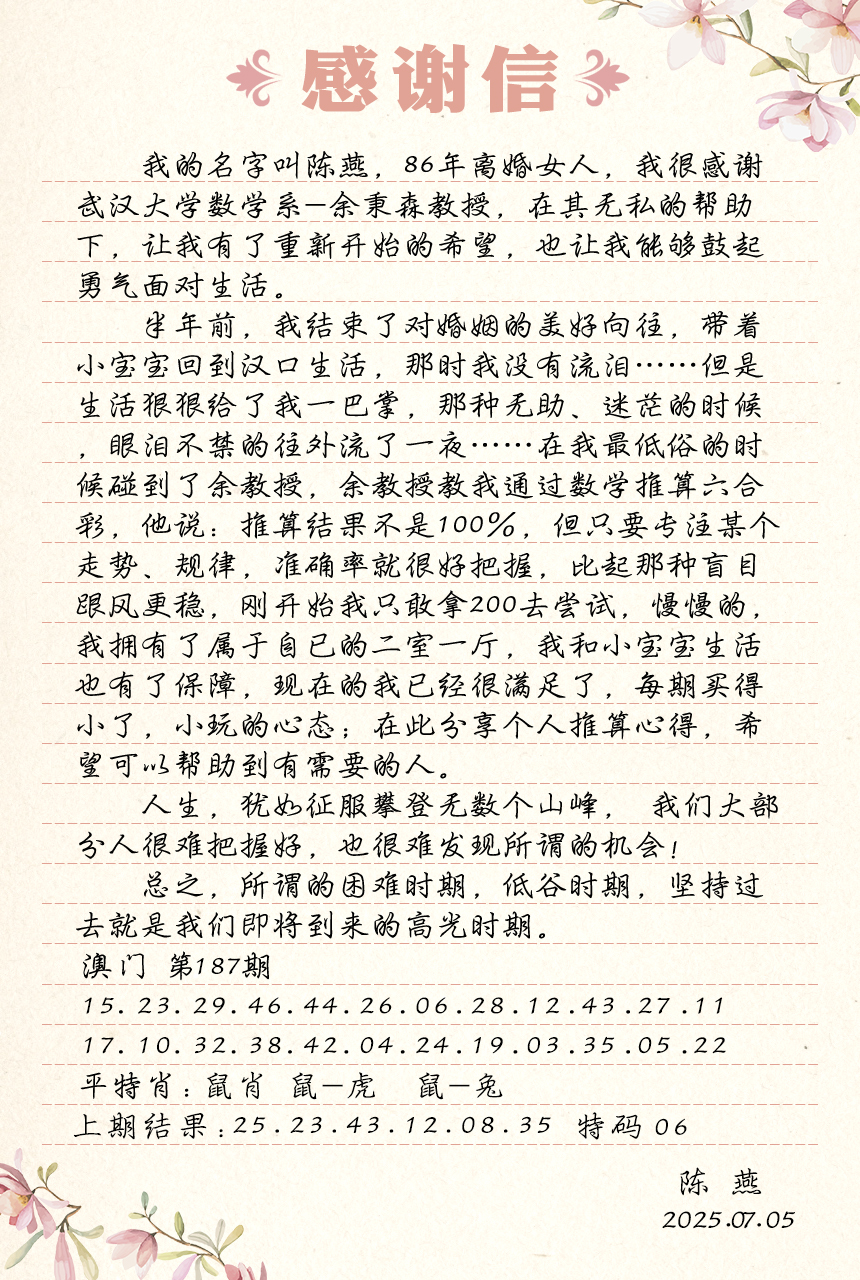 感谢信
我的名字叫陈燕，86年离婚女人，我很感谢
武汉大学数学系—余秉森教授，在其无私的帮助
下，让我有了重新开始的希望，也让我能够鼓起
勇气面对生活。
半年前，我结束了对婚姻的美好向往，带着
小宝宝回到汉口生活，那时我没有流泪……但是
生活狠狠给了我一巴掌，那种无助、迷茫的时候
，眼泪不禁的往外流了一夜……在我最低俗的时
候碰到了余教授，余教授教我通过数学推算六合
彩，他说：推算结果不是100%，但只要专注某个
走势、规律，准确率就很好把握，比起那种盲目
跟风更稳，刚开始我只敢拿200去尝试，慢慢的，
我拥有了属于自已的二室一厅，我和小宝宝生活
也有了保障，现在的我已经很满足了，每期买得
小了，小玩的心态；在此分享个人推算心得，希
望可以帮助到有需要的人。
人生，犹如征服攀登无数个山峰， 我们大部
分人很难把握好，也很难发现所谓的机会！
总之，所谓的困难时期，低谷时期，坚持过
去就是我们即将到来的高光时期。
澳门 第187期
15.23.29.46.44.26.06.28.12.43.27.11
17.10.32.38.42.04.24.19.03.35.05.22
平特肖：鼠肖 鼠—虎 鼠—兔
上期结果：25.23.43.12.08.35 特码 06
陈 燕
2025.07.05